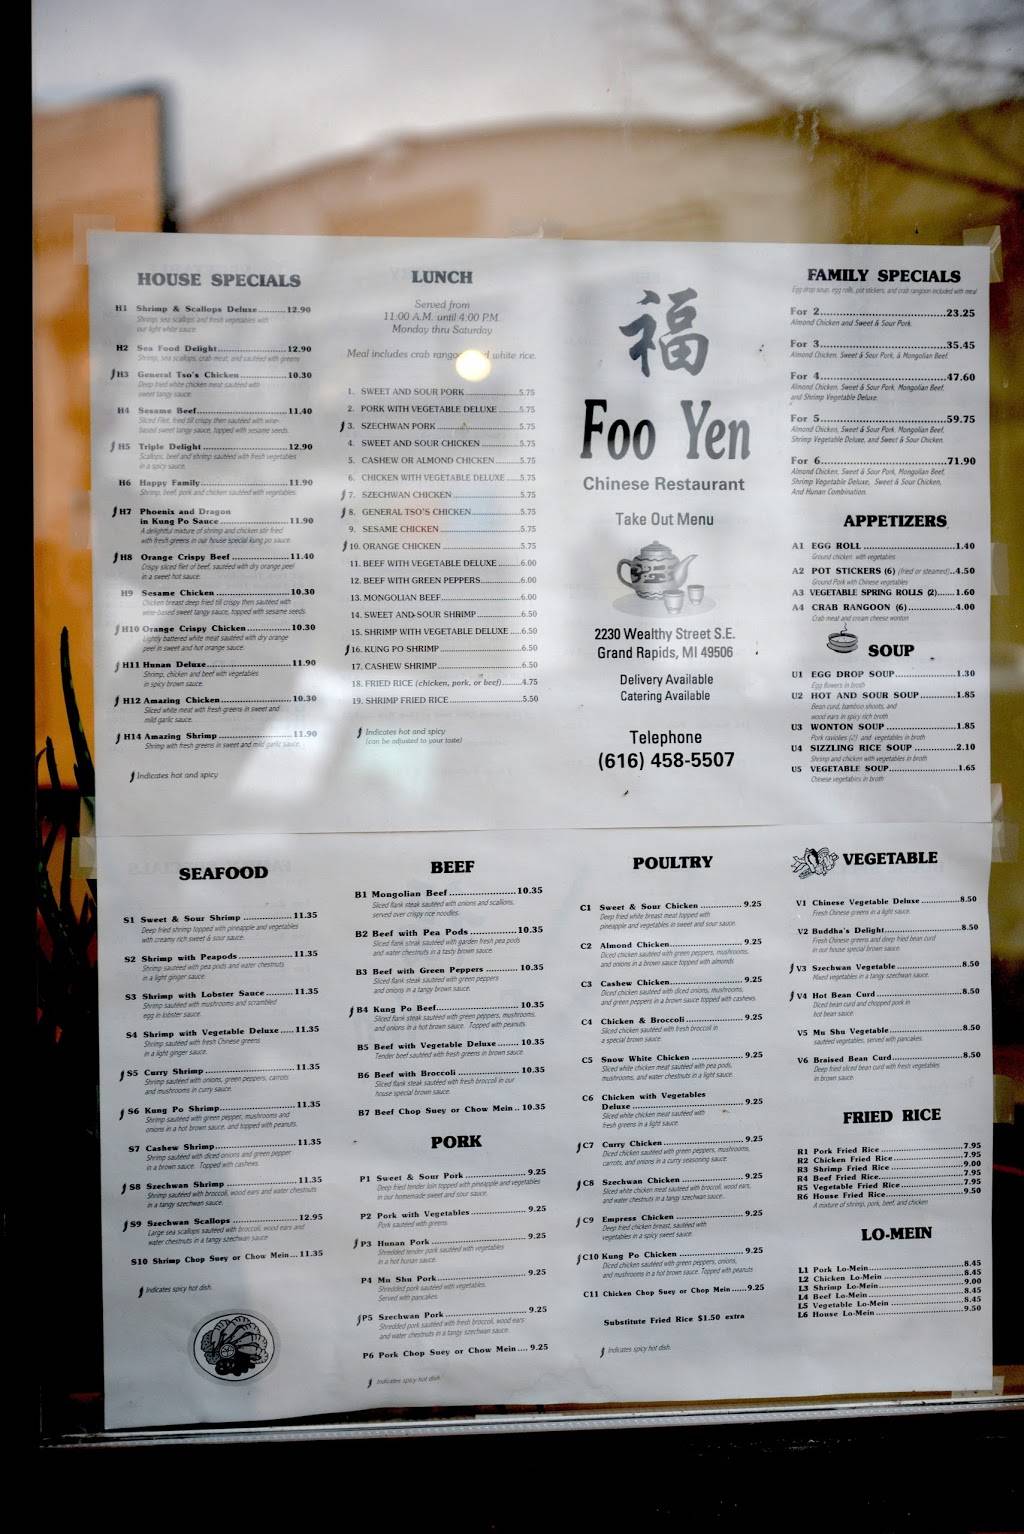 HOUSE SPECIALS
H1 Shrimp & Scallops Deluxe..........12.90
Shrimp, sea scallops and fresh vegetables with
our light white sauce.
H2 Sea Food Delight..........12.90
Shrimp, sea scallops, crab meat, and sautéed with greens
H3 General Tso's Chicken..........10.30
Deep fried white chicken meat sautéed with
sweet tangy sauce.
H4 Sesame Beef..........11.40
Sliced Filet, fried till crispy then sautéed with wine-
based sweet tangy sauce, topped with sesame seeds.
H5 Triple Delight..........12.90
Scallops, beef and shrimp sautéed with fresh vegetables
in a spicy sauce.
H6 Happy Family..........11.90
Shrimp, beef, pork and chicken sautéed with vegetables.
H7 Phoenix and Dragon
in Kung Po Sauce..........11.90
A delightful mixture of shrimp and chicken stir fried
with fresh greens in our house special kung po sauce.
H8 Orange Crispy Beef..........11.40
Crispy sliced filet of beef, sautéed with dry orange peel
in a sweet hot sauce.
H9 Sesame Chicken..........10.30
Chicken breast deep fried till crispy then sautéed with
wine-based sweet tangy sauce, topped with sesame seeds.
H10 Orange Crispy Chicken..........10.30
Lightly battered white meat sautéed with dry orange
peel in sweet and hot orange sauce.
H11 Hunan Deluxe..........11.90
Shrimp, chicken and beef with vegetables
in spicy brown sauce.
H12 Amazing Chicken..........10.30
Sliced white meat with fresh greens in sweet and
mild garlic sauce.
H14 Amazing Shrimp..........11.90
Shrimp with fresh greens in sweet and mild garlic sauce.
Indicates hot and spicy
LUNCH
Served from
11:00 A.M. until 4:00 P.M.
Monday thru Saturday
Meal includes crab rangoon white rice.
1. SWEET AND SOUR PORK..........5.75
2. PORK WITH VEGETABLE DELUXE..........5.75
3. SZECHWAN PORK..........5.75
4. SWEET AND SOUR CHICKEN..........5.75
5. CASHEW OR ALMOND CHICKEN..........5.75
6. CHICKEN WITH VEGETABLE DELUXE.....5.75
7. SZECHWAN CHICKEN..........5.75
8. GENERAL TSO'S CHICKEN..........5.75
9. SESAME CHICKEN..........5.75
10. ORANGE CHICKEN..........5.75
11. BEEF WITH VEGETABLE DELUXE..........6.00
12. BEEF WITH GREEN PEPPERS..........6.00
13. MONGOLIAN BEEF..........6.00
14. SWEET AND SOUR SHRIMP..........6.50
15. SHRIMP WITH VEGETABLE DELUXE....6.50
16. KUNG PO SHRIMP..........6.50
17. CASHEW SHRIMP..........6.50
18. FRIED RICE (chicken, pork, or beef)..........4.75
19. SHRIMP FRIED RICE..........5.50
Indicates hot and spicy
(can be adjusted to your taste)
福
Foo Yen
Chinese Restaurant
Take Out Menu
2230 Wealthy Street S.E.
Grand Rapids, MI 49506
Delivery Available
Catering Available
Telephone
(616) 458-5507
FAMILY SPECIALS
Egg drop soup, egg rolls, pot stickers, and crab rangoon included with meal
For 2..........23.25
Almond Chicken and Sweet & Sour Pork.
For 3..........35.45
Almond Chicken, Sweet & Sour Pork, & Mongolian Beef.
For 4..........47.60
Almond Chicken, Sweet & Sour Pork, Mongolian Beef,
and Shrimp Vegetable Deluxe.
For 5..........59.75
Almond Chicken, Sweet & Sour Pork, Mongolian Beef,
Shrimp Vegetable Deluxe, and Sweet & Sour Chicken.
For 6..........71.90
Almond Chicken, Sweet & Sour Pork, Mongolian Beef,
Shrimp Vegetable Deluxe, Sweet & Sour Chicken,
And Hunan Combination.
APPETIZERS
A1 EGG ROLL..........1.40
Ground chicken with vegetables
A2 POT STICKERS (6) (fried or steamed)..4.50
Ground Pork with Chinese vegetables
A3 VEGETABLE SPRING ROLLS (2)......1.60
A4 CRAB RANGOON (6)..........4.00
Crab meat and cream cheese wonton
SOUP
U1 EGG DROP SOUP..........1.30
Egg flowers in broth
U2 HOT AND SOUR SOUP..........1.85
Bean curd, bamboo shoots, and
wood ears in spicy rich broth
U3 WONTON SOUP..........1.85
Pork raviolies (2) and vegetables in broth
U4 SIZZLING RICE SOUP..........2.10
Shrimp and chicken with vegetables in broth
U5 VEGETABLE SOUP..........1.65
Chinese vegetables in broth
SEAFOOD
S1 Sweet & Sour Shrimp..........11.35
Deep fried shrimp topped with pineapple and vegetables
with creamy rich sweet & sour sauce.
S2 Shrimp with Peapods..........11.35
Shrimp sautéed with pea pods and water chestnuts
in a light ginger sauce.
S3 Shrimp with Lobster Sauce..........11.35
Shrimp sautéed with mushrooms and scrambled
egg in lobster sauce.
S4 Shrimp with Vegetable Deluxe.....11.35
Shrimp sautéed with fresh Chinese greens
in a light ginger sauce.
S5 Curry Shrimp..........11.35
Shrimp sautéed with onions, green peppers, carrots
and mushrooms in curry sauce.
S6 Kung Po Shrimp..........11.35
Shrimp sautéed with green pepper, mushrooms and
onions in a hot brown sauce, and topped with peanuts.
S7 Cashew Shrimp..........11.35
Shrimp sautéed with diced onions and green pepper
in a brown sauce. Topped with cashews.
S8 Szechwan Shrimp..........11.35
Shrimp sautéed with broccoli, wood ears and water chestnuts
in a tangy szechwan sauce.
S9 Szechwan Scallops..........12.95
Large sea scallops sautéed with broccoli, wood ears and
water chestnuts in a tangy szechwan sauce
S10 Shrimp Chop Suey or Chow Mein...11.35
Indicates spicy hot dish.
BEEF
B1 Mongolian Beef..........10.35
Sliced flank steak sautéed with onions and scallions,
served over crispy rice noodles.
B2 Beef with Pea Pods..........10.35
Sliced flank steak sautéed with garden fresh pea pods
and water chestnuts in a tasty brown sauce.
B3 Beef with Green Peppers..........10.35
Sliced flank steak sautéed with green peppers
and onions in a tangy brown sauce.
B4 Kung Po Beef..........10.35
Sliced flank steak sautéed with green peppers, mushrooms,
and onions in a hot brown sauce. Topped with peanuts.
B5 Beef with Vegetable Deluxe.......10.35
Tender beef sautéed with fresh greens in brown sauce.
B6 Beef with Broccoli..........10.35
Sliced flank steak sautéed with fresh broccoli in our
house special brown sauce.
B7 Beef Chop Suey or Chow Mein..10.35
PORK
P1 Sweet & Sour Pork..........9.25
Deep fried tender loin topped with pineapple and vegetables
in our homemade sweet and sour sauce.
P2 Pork with Vegetables..........9.25
Pork sautéed with greens.
P3 Hunan Pork..........9.25
Shredded tender pork sautéed with vegetables
in a hot hunan sauce.
P4 Mu Shu Pork..........9.25
Shredded pork sautéed with vegetables.
Served with pancakes.
P5 Szechwan Pork..........9.25
Shredded pork sautéed with fresh broccoli, wood ears
and water chestnuts in a tangy szechwan sauce.
P6 Pork Chop Suey or Chow Mein....9.25
Indicates spicy hot dish.
POULTRY
C1 Sweet & Sour Chicken..........9.25
Deep fried white breast meat topped with
pineapple and vegetables in sweet and sour sauce.
C2 Almond Chicken..........9.25
Diced chicken sautéed with green peppers, mushrooms,
and onions in a brown sauce topped with almonds
C3 Cashew Chicken..........9.25
Diced chicken sautéed with diced onions, mushrooms,
and green peppers in a brown sauce topped with cashews.
C4 Chicken & Broccoli..........9.25
Sliced chicken sautéed with fresh broccoli in
a special brown sauce.
C5 Snow White Chicken..........9.25
Sliced white chicken meat sautéed with pea pods,
mushrooms, and water chestnuts in a light sauce.
C6 Chicken with Vegetables
Deluxe..........9.25
Sliced white chicken meat sautéed with
fresh greens in a light sauce.
C7 Curry Chicken..........9.25
Diced chicken sautéed with green peppers, mushrooms,
carrots, and onions in a curry seasoning sauce.
C8 Szechwan Chicken..........9.25
Sliced white chicken meat sautéed with broccoli, wood ears,
and water chestnuts in a tangy szechwan sauce.
C9 Empress Chicken..........9.25
Deep fried chicken breast, sautéed with
vegetables in a spicy sweet sauce.
C10 Kung Po Chicken..........9.25
Diced chicken sautéed with green peppers, onions,
and mushrooms in a hot brown sauce. Topped with peanuts
C11 Chicken Chop Suey or Chow Mein......9.25
Substitute Fried Rice $1.50 extra
Indicates spicy hot dish.
VEGETABLE
V1 Chinese Vegetable Deluxe..........8.50
Fresh Chinese greens in a light sauce.
V2 Buddha's Delight..........8.50
Fresh Chinese greens and deep fried bean curd
in our house special brown sauce.
V3 Szechwan Vegetable..........8.50
Mixed vegetables in a tangy szechwan sauce.
V4 Hot Bean Curd..........8.50
Diced bean curd and chopped pork in
hot bean sauce.
V5 Mu Shu Vegetable..........8.50
sautéed vegetables, served with pancakes.
V6 Braised Bean Curd..........8.50
Deep fried sliced bean curd with fresh vegetables
in brown sauce.
FRIED RICE
R1 Pork Fried Rice..........7.95
R2 Chicken Fried Rice..........7.95
R3 Shrimp Fried Rice..........9.00
R4 Beef Fried Rice..........7.95
R5 Vegetable Fried Rice..........7.95
R6 House Fried Rice..........9.50
A mixture of shrimp, pork, beef, and chicken
LO-MEIN
L1 Pork Lo-Mein..........8.45
L2 Chicken Lo-Mein..........8.45
L3 Shrimp Lo-Mein..........9.00
L4 Beef Lo-Mein..........8.45
L5 Vegetable Lo-Mein..........8.45
L6 House Lo-Mein..........9.50